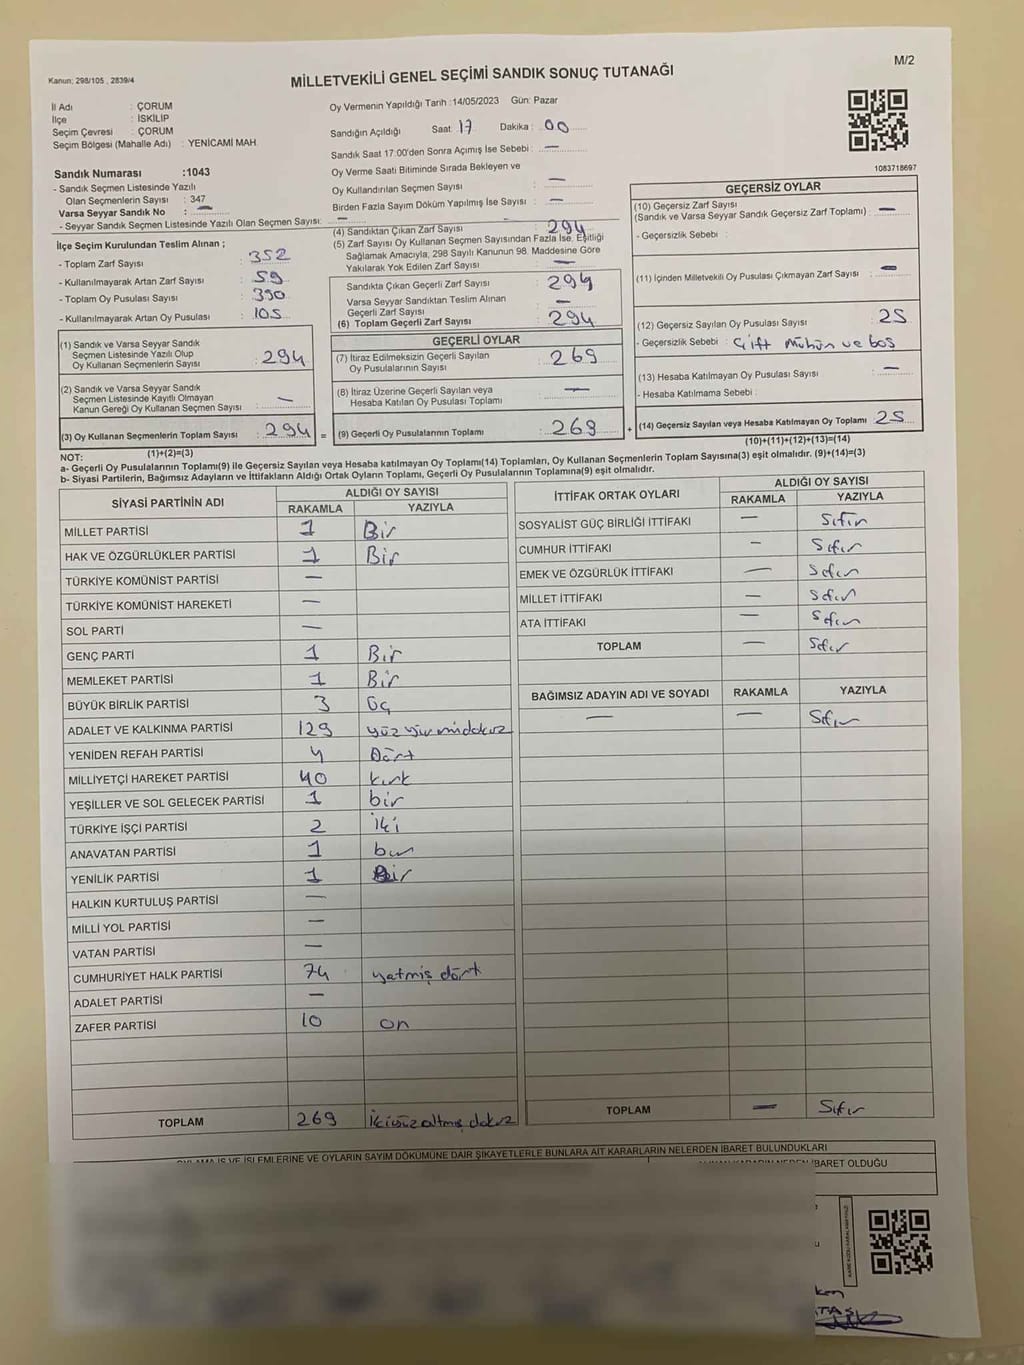 M/2
Kanun: 298/105 , 2839/4
MİLLETVEKİLİ GENEL SEÇİMİ SANDIK SONUÇ TUTANAĞI
İl Adı : ÇORUM
İlçe : İSKİLİP
Seçim Çevresi : ÇORUM
Seçim Bölgesi (Mahalle Adı) : YENİCAMİ MAH.
Sandık Numarası :1043
- Sandık Seçmen Listesinde Yazılı
Olan Seçmenlerin Sayısı : 347
Varsa Seyyar Sandık No : —
- Seyyar Sandık Seçmen Listesinde Yazılı Olan Seçmen Sayısı: —
Oy Vermenin Yapıldığı Tarih :14/05/2023 Gün: Pazar
Sandığın Açıldığı Saat: 17 Dakika : 00
Sandık Saat 17:00'den Sonra Açılmış İse Sebebi : —
Oy Verme Saati Bitiminde Sırada Bekleyen ve
Oy Kullandırılan Seçmen Sayısı : —
Birden Fazla Sayım Döküm Yapılmış İse Sayısı : —
1083718697
İlçe Seçim Kurulundan Teslim Alınan ;
- Toplam Zarf Sayısı : 352
- Kullanılmayarak Artan Zarf Sayısı : 59
- Toplam Oy Pusulası Sayısı : 390
- Kullanılmayarak Artan Oy Pusulası : 105
(1) Sandık ve Varsa Seyyar Sandık
Seçmen Listesinde Yazılı Olup
Oy Kullanan Seçmenlerin Sayısı : 294
(2) Sandık ve Varsa Seyyar Sandık
Seçmen Listesinde Kayıtlı Olmayan
Kanun Gereği Oy Kullanan Seçmen Sayısı : —
(3) Oy Kullanan Seçmenlerin Toplam Sayısı : 294
(1)+(2)=(3)
(4) Sandıktan Çıkan Zarf Sayısı : 294
(5) Zarf Sayısı Oy Kullanan Seçmen Sayısından Fazla İse, Eşitliği
Sağlamak Amacıyla, 298 Sayılı Kanunun 98. Maddesine Göre
Yakılarak Yok Edilen Zarf Sayısı : —
Sandıkta Çıkan Geçerli Zarf Sayısı : 294
Varsa Seyyar Sandıktan Teslim Alınan
Geçerli Zarf Sayısı : —
(6) Toplam Geçerli Zarf Sayısı : 294
GEÇERLİ OYLAR
(7) İtiraz Edilmeksizin Geçerli Sayılan
Oy Pusulalarının Sayısı : 269
(8) İtiraz Üzerine Geçerli Sayılan veya
Hesaba Katılan Oy Pusulası Toplamı : —
= (9) Geçerli Oy Pusulalarının Toplamı : 269 +
GEÇERSİZ OYLAR
(10) Geçersiz Zarf Sayısı
(Sandık ve Varsa Seyyar Sandık Geçersiz Zarf Toplamı) : —
- Geçersizlik Sebebi :
(11) İçinden Milletvekili Oy Pusulası Çıkmayan Zarf Sayısı : —
(12) Geçersiz Sayılan Oy Pusulası Sayısı : 25
- Geçersizlik Sebebi : Çift Mühür ve boş
(13) Hesaba Katılmayan Oy Pusulası Sayısı : —
- Hesaba Katılmama Sebebi :
(14) Geçersiz Sayılan veya Hesaba Katılmayan Oy Toplamı 25
(10)+(11)+(12)+(13)=(14)
NOT:
a- Geçerli Oy Pusulalarının Toplamı(9) ile Geçersiz Sayılan veya Hesaba katılmayan Oy Toplamı(14) Toplamları, Oy Kullanan Seçmenlerin Toplam Sayısına(3) eşit olmalıdır. (9)+(14)=(3)
b- Siyasi Partilerin, Bağımsız Adayların ve İttifakların Aldığı Ortak Oyların Toplamı, Geçerli Oy Pusulalarının Toplamına(9) eşit olmalıdır.
SİYASİ PARTİNİN ADI ALDIĞI OY SAYISI
RAKAMLA YAZIYLA
MİLLET PARTİSİ 1 Bir
HAK VE ÖZGÜRLÜKLER PARTİSİ 1 Bir
TÜRKİYE KOMÜNİST PARTİSİ —
TÜRKİYE KOMÜNİST HAREKETİ —
SOL PARTİ —
GENÇ PARTİ 1 Bir
MEMLEKET PARTİSİ 1 Bir
BÜYÜK BİRLİK PARTİSİ 3 üç
ADALET VE KALKINMA PARTİSİ 129 yüz yirmidokuz
YENİDEN REFAH PARTİSİ 4 Dört
MİLLİYETÇİ HAREKET PARTİSİ 40 kırk
YEŞİLLER VE SOL GELECEK PARTİSİ 1 bir
TÜRKİYE İŞÇİ PARTİSİ 2 iki
ANAVATAN PARTİSİ 1 bir
YENİLİK PARTİSİ 1 Bir
HALKIN KURTULUŞ PARTİSİ —
MİLLİ YOL PARTİSİ —
VATAN PARTİSİ —
CUMHURİYET HALK PARTİSİ 74 yatmiş dört
ADALET PARTİSİ —
ZAFER PARTİSİ 10 on
TOPLAM 269 ikiyüzaltmış dokuz
İTTİFAK ORTAK OYLARI ALDIĞI OY SAYISI
RAKAMLA YAZIYLA
SOSYALİST GÜÇ BİRLİĞİ İTTİFAKI — Sıfır
CUMHUR İTTİFAKI — Sıfır
EMEK VE ÖZGÜRLÜK İTTİFAKI — Sıfır
MİLLET İTTİFAKI — Sıfır
ATA İTTİFAKI — Sıfır
TOPLAM — Sıfır
BAĞIMSIZ ADAYIN ADI VE SOYADI RAKAMLA YAZIYLA
— — Sıfır
TOPLAM — Sıfır
İŞLEMLERİNE VE OYLARIN SAYIM DÖKÜMÜNE DAİR ŞİKAYETLERLE BUNLARA AİT KARARLARIN NELERDEN İBARET BULUNDUKLARI
İBARET OLDUĞU